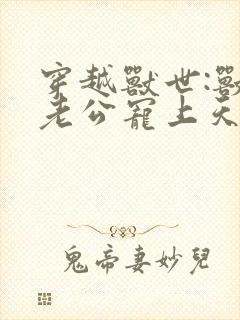 穿越獸世:獸
老公寵上天
鬼帝妻妙兒